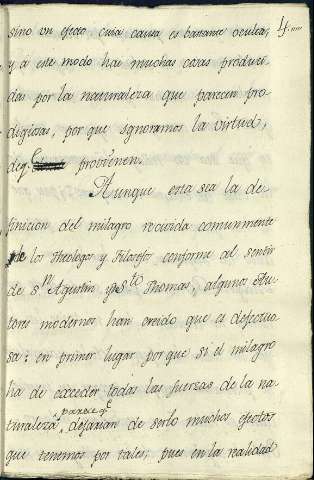 4.
sino un efecto cuia causa es bastante oculta,
y á este modo hai muchas cosas produci-
das por la naturaleza que parecen pro-
digiosas, por que ignoramos la virtud,
deqe provienen.
Aunque esta sea la de-
finicion del milagro recivida comunmente
de los Theologos y Filosofos conforme al sentir
de Sn Agustin y Sto Thomas, algunos Au-
tores modernos han creido que es defectuo-
sa: en primer lugar por que si el milagro
ha de exceder todas las fuerzas de la na-
turaleza, parece qe dejarían de serlo muchos efectos
que tenemos por tales; pues en la realidad